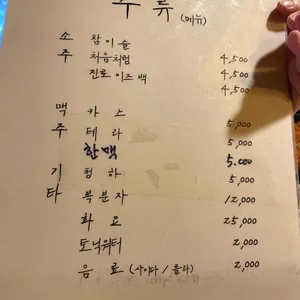 주 류 (메뉴)
소 참이슬 4,500
주 처음처럼 4,500
진로 이즈 백 4,500
맥 카 스 5,000
주 테 라 5,000
한맥 5,000
기 청 하 5,000
타 복 분 자 12,000
화 요 25,000
토닉워터 2,000
음 료 (사이다 / 콜라) 2,000